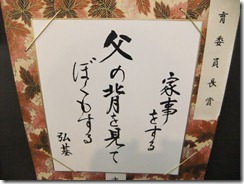 育委員長賞
家事をする
父の背を見て
ぼくもする
弘基